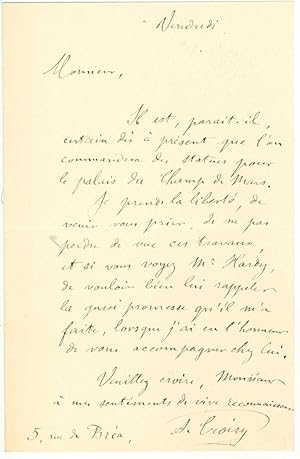 Vendredi
Monsieur,
Il est, parait-il,
certain dès à présent que l'on
commandera des statues pour
le palais du Champ de Mars.
Je prends la liberté, de
venir vous prier, de ne pas
perdre de vue ces travaux,
et si vous voyez Mr Hardy,
de vouloir bien lui rappeler
la quasi promesse qu'il m'a
faite, lorsque j'ai eu l'honneur
de vous accompagner chez lui.
Veuillez croire, Monsieur
à mes sentiments de vive reconnaissance
A. Croisy
5, rue de Bréa,